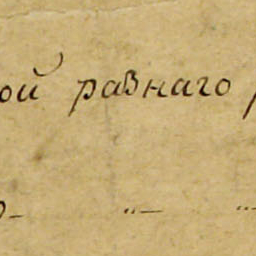 ой равнаго
–〃– 〃